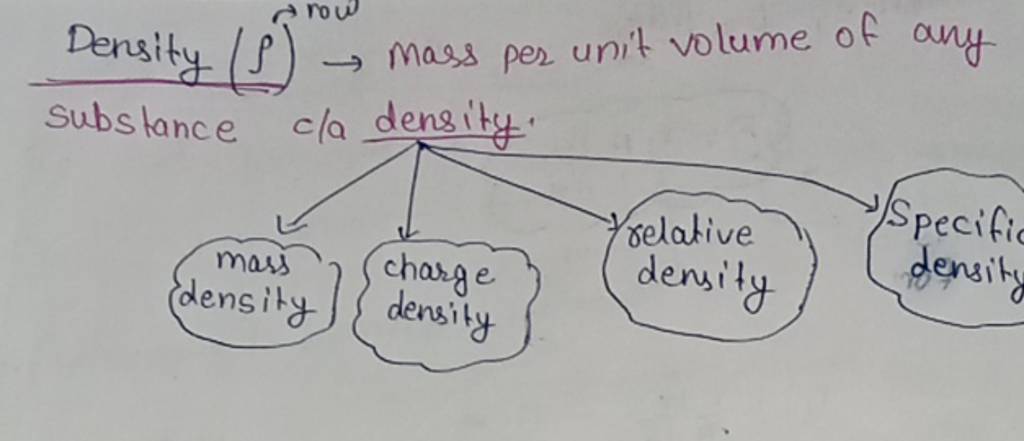 row
Density (ρ) → Mass per unit volume of any
substance c/a density.
mass
density
charge
density
relative
density
Specific
density